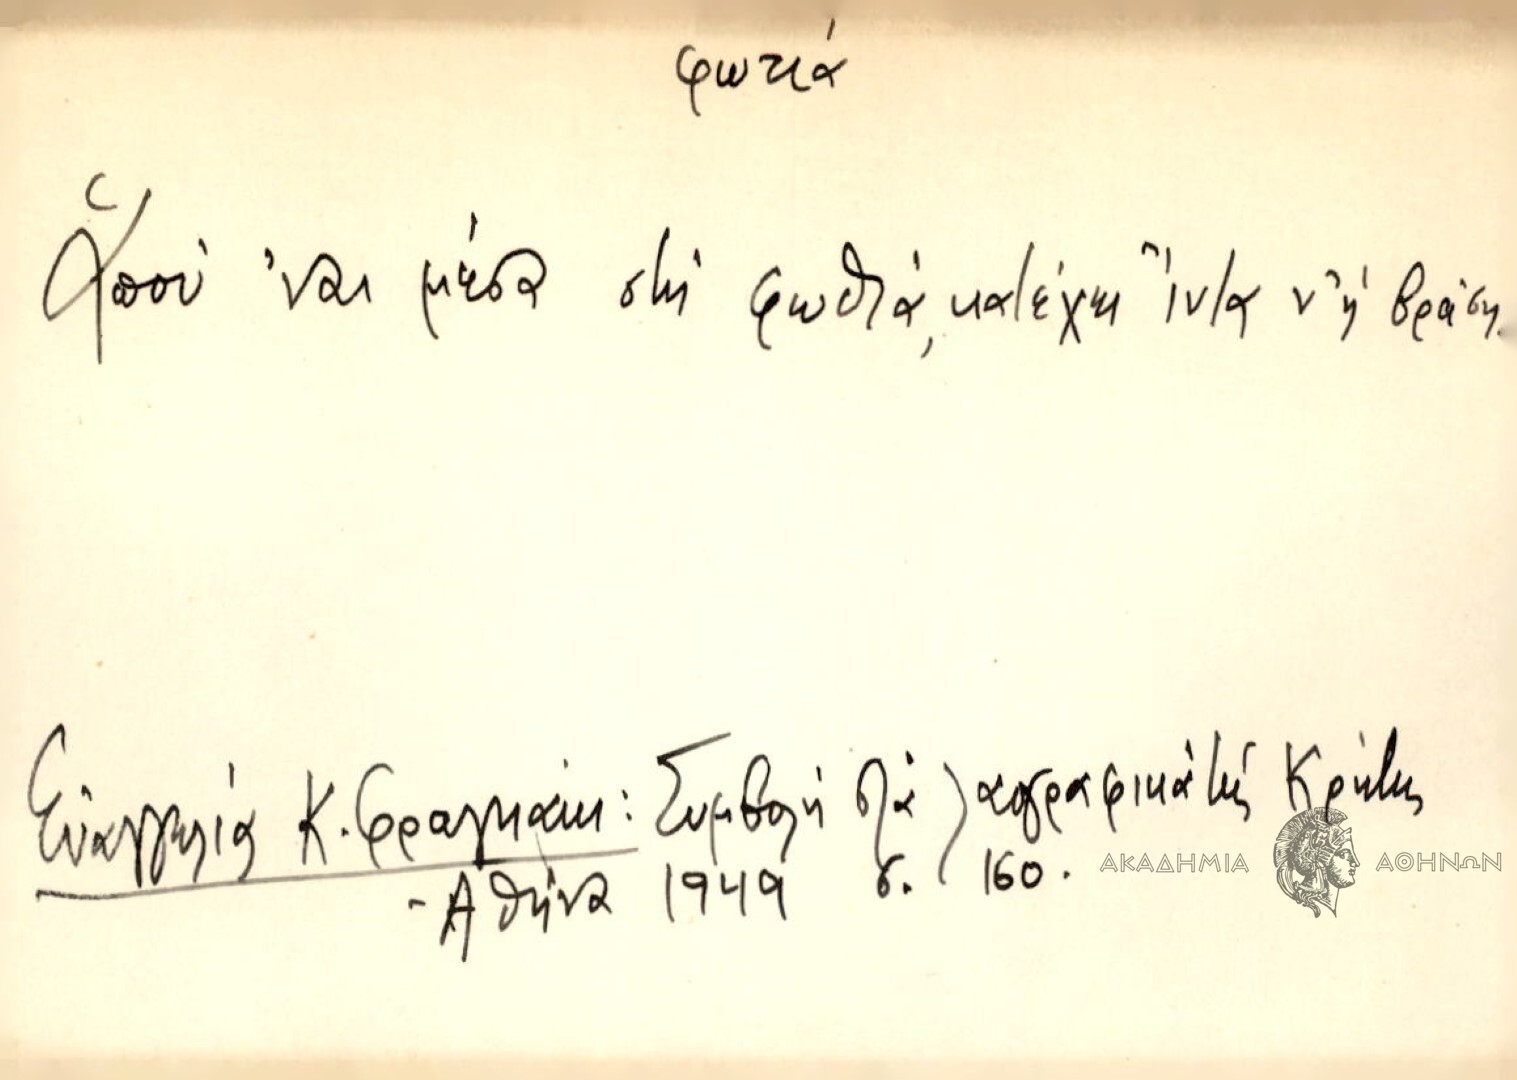 φωτιά
Ἁποὺ 'ναι μέσα στὴ φωθιά, κατέχει ἴντα ν' ἡ βράση.
Εὐαγγελίας Κ. Φραγκάκι: Συμβολὴ στὰ λαογραφικὰ τῆς Κρήτης
- Ἀθήνα 1949 σ. 160.
ΑΚΑΔΗΜΙΑ ΑΘΗΝΩΝ